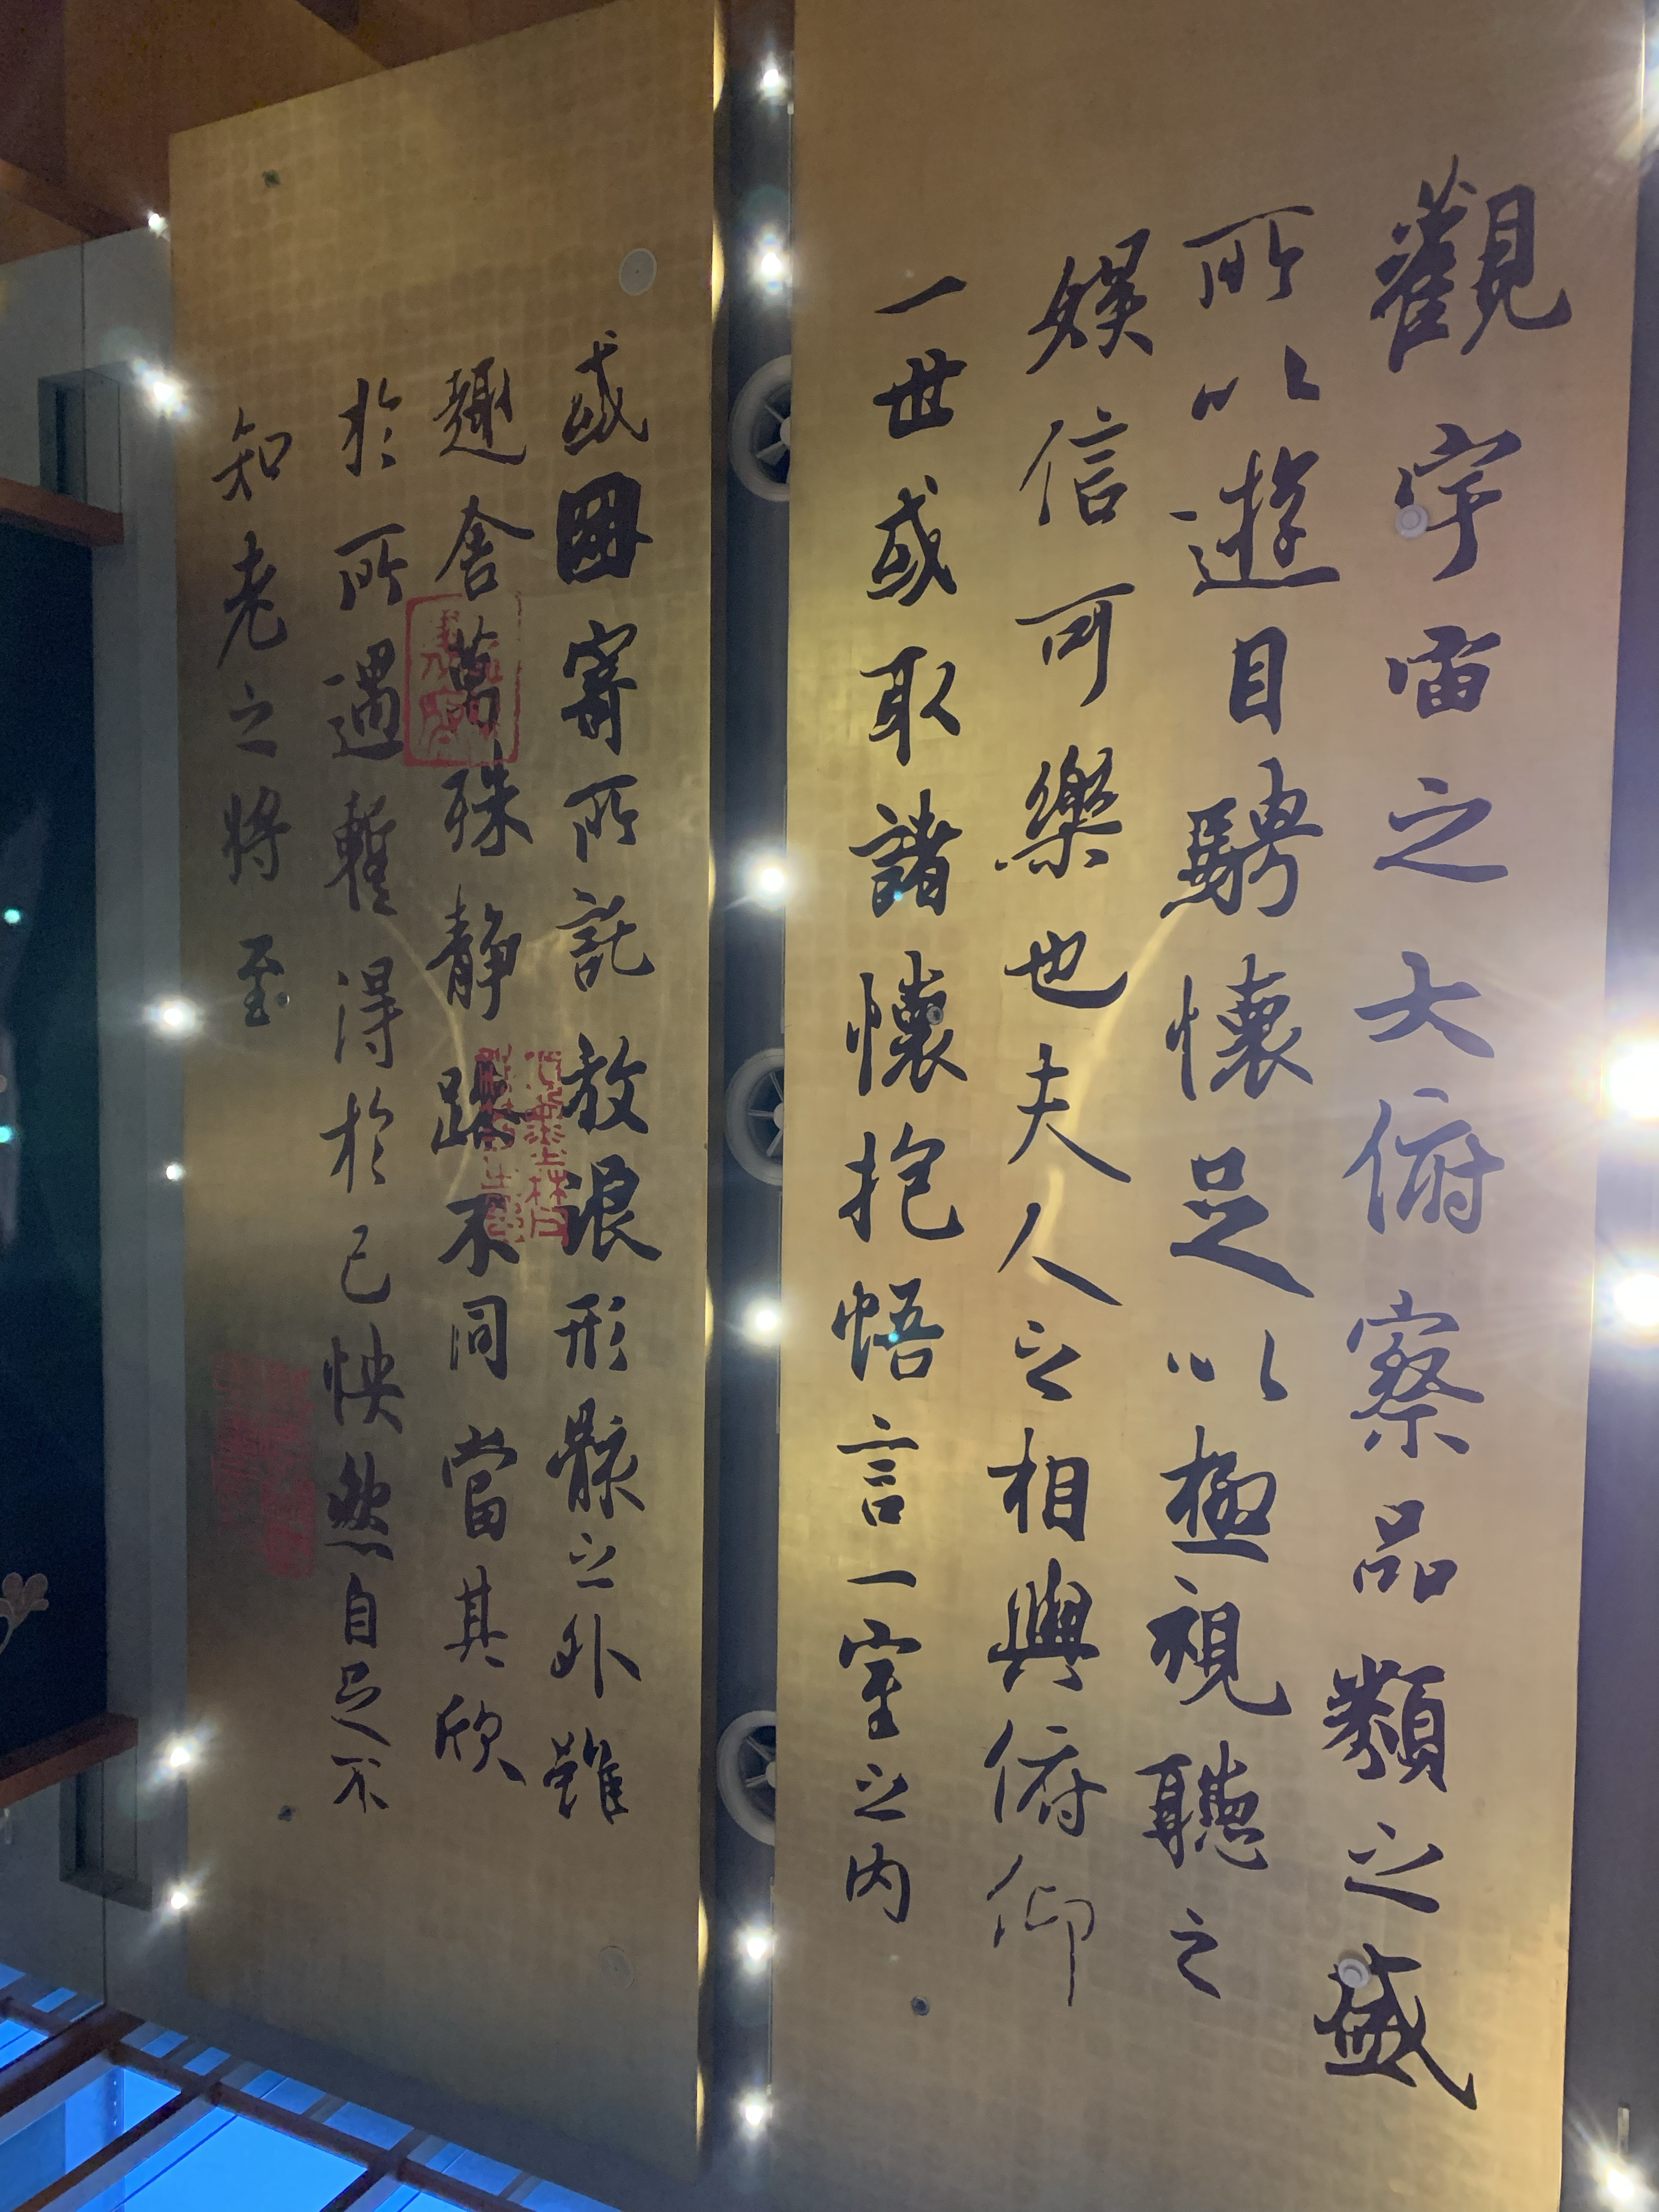 觀宇宙之大俯察品類之盛
所以遊目騁懷足以極視聽之
娛信可樂也夫人之相與俯仰
一世或取諸懷抱悟言一室之內
或因寄所託放浪形骸之外雖
趣舍萬殊靜躁不同當其欣
於所遇蹔得於己怏然自足不
知老之將至